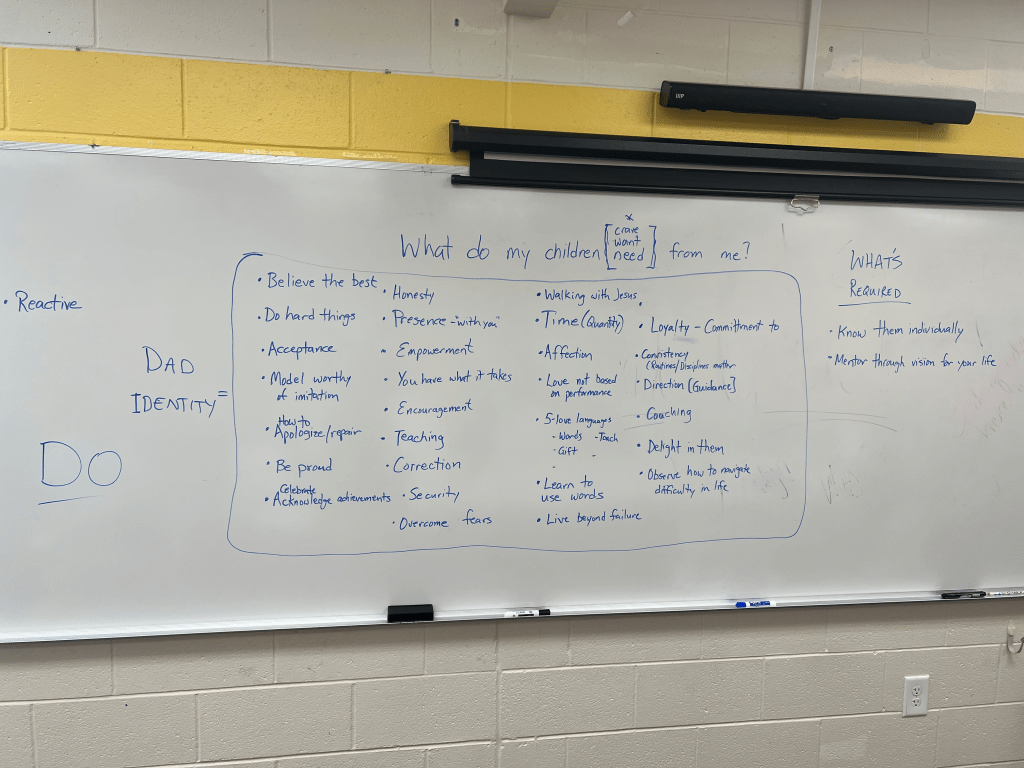 WP
What do my children
*
[crave
want
need]
from me?
• Reactive
DAD
IDENTITY =
DO
• Believe the best
• Do hard things
• Acceptance
• Model worthy
of imitation
How to
• Apologize/repair
• Be proud
Celebrate
• Acknowledge achievements
• Honesty
• Presence - "with you"
• Empowerment
• You have what it takes
• Encouragement
• Teaching
• Correction
• Security
• Overcome fears
• Walking with Jesus
• Time (Quantity)
• Affection
• Love not based
on performance
• 5-love languages
- Words - Touch
- Gift -
-
• Learn to
use words
• Live beyond failure
•
• Loyalty - Committment to
• Consistency
(Routines/Disciplines matter
• Direction [Guidance]
• Coaching
• Delight in them
• Observe how to navigate
difficulty in life
WHAT'S
REQUIRED
• Know them individually
• Mentor through vision for your life